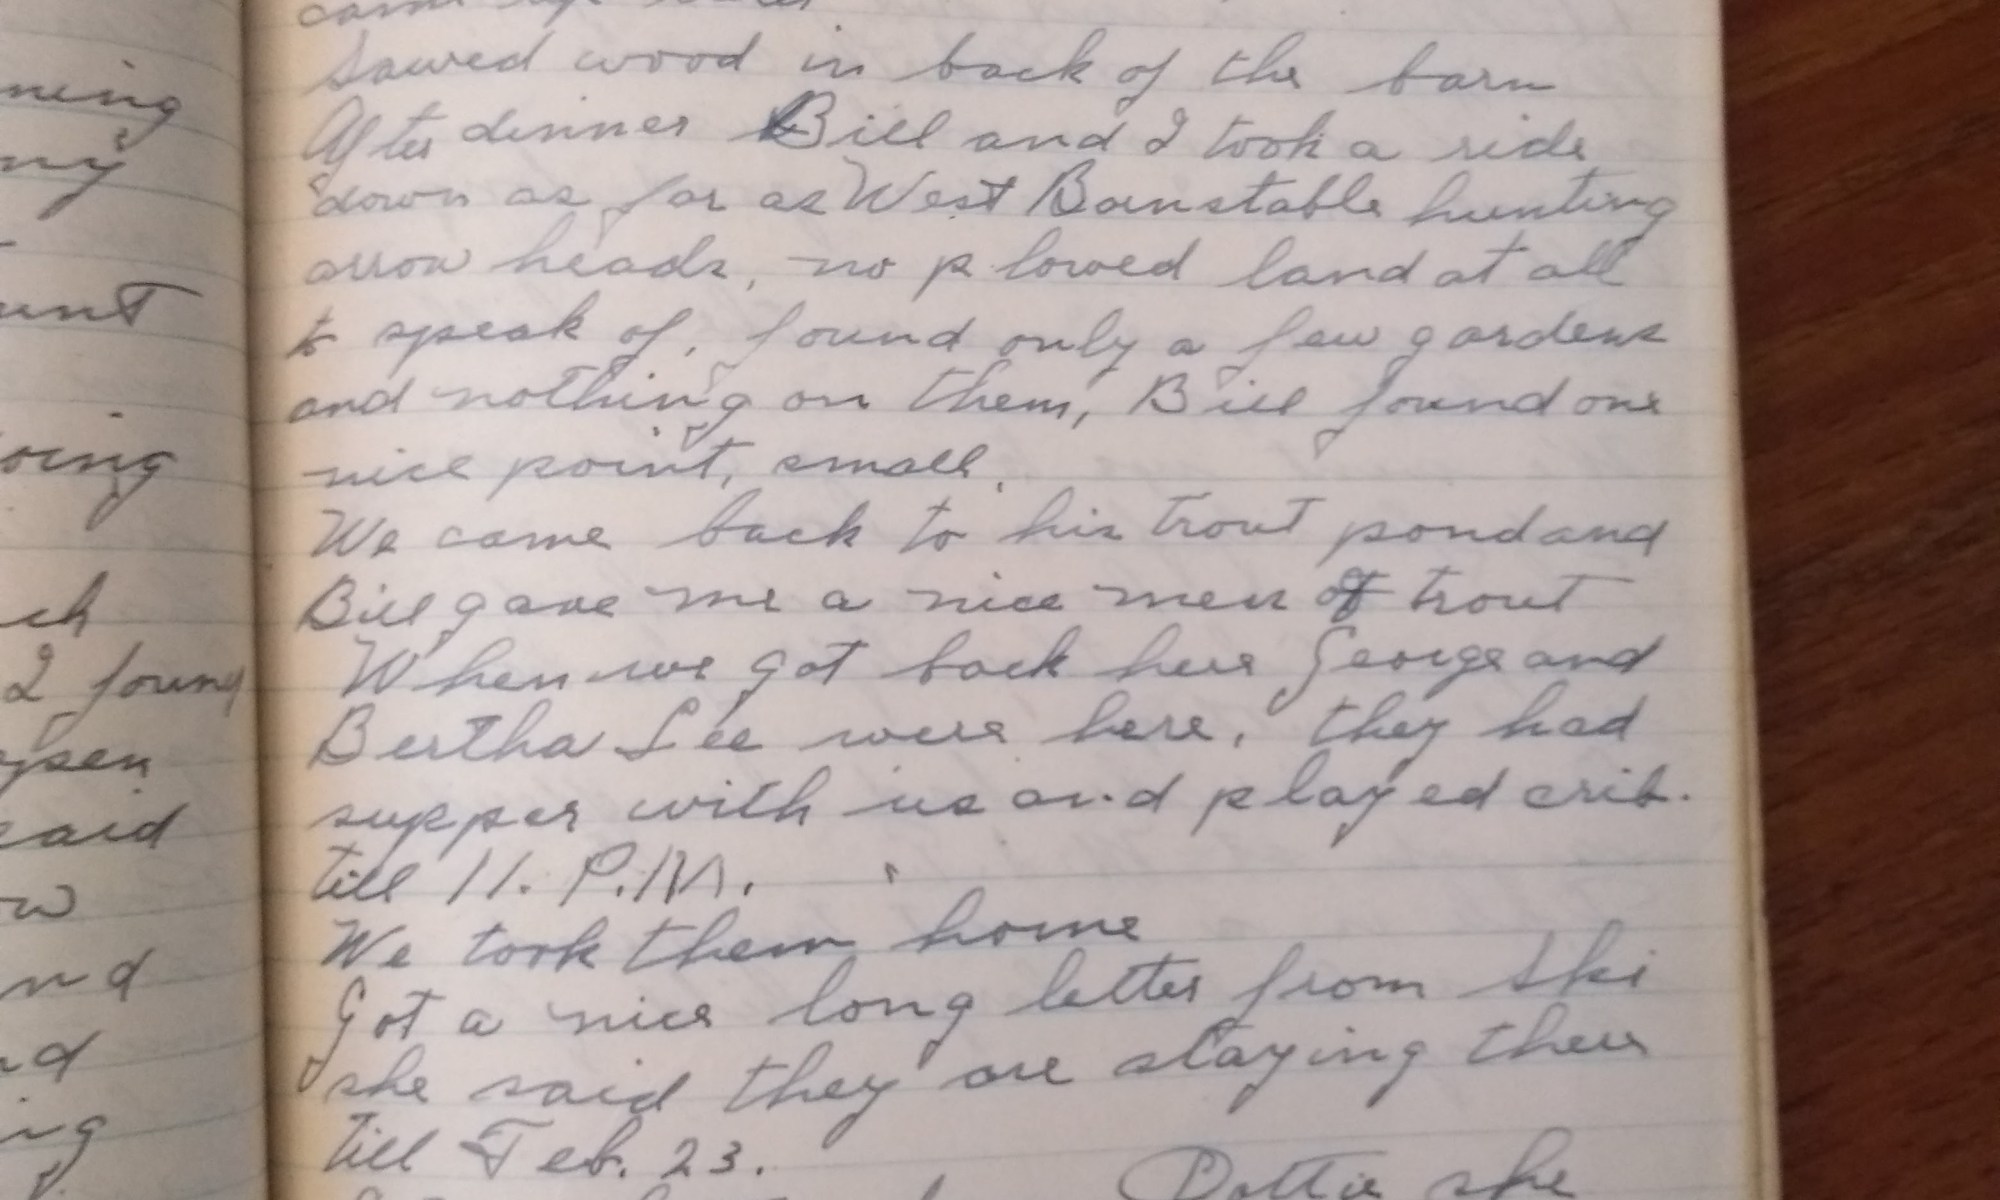 sawed wood in back of the barn
After dinner Bill and I took a ride
down as far as West Barnstable hunting
arrow heads, no plowed land at all
to speak of, found only a few gardens
and nothing on them, Bill found one
nice point, small.
We came back to his trout pond and
Bill gave me a nice mess of trout
When we got back here George and
Bertha Lee were here, they had
supper with us and played crib.
till 11. P.M.
We took them home
Got a nice long letter from Ski
she said they are staying there
till Feb. 23.
Dottie she